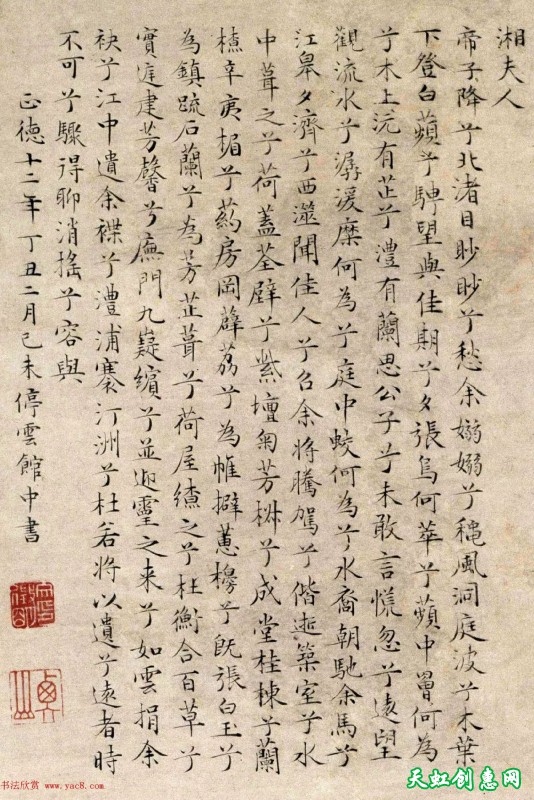 湘夫人
帝子降兮北渚目眇眇兮愁余嫋嫋兮秋風洞庭波兮木葉
下登白薠兮騁望與佳期兮夕張鳥何萃兮蘋中罾何為
兮木上沅有芷兮澧有蘭思公子兮未敢言慌忽兮遠望
觀流水兮潺湲麋何為兮庭中蛟何為兮水裔朝馳余馬兮
江皋夕濟兮西澨聞佳人兮召余將騰駕兮偕逝築室兮水
中葺之兮荷蓋荃壁兮紫壇匊芳椒兮成堂桂棟兮蘭
橑辛夷楣兮葯房罔薜荔兮為帷擗蕙櫋兮既張白玉兮
為鎮疏石蘭兮為芳芷葺兮荷屋繚之兮杜衡合百草兮
實庭建芳馨兮廡門九嶷繽兮並迎靈之来兮如雲捐余
袂兮江中遺余褋兮澧浦搴汀洲兮杜若將以遺兮遠者時
不可兮驟得聊消搖兮容與
正德十二年丁丑二月己未停雲館中書
书法欣赏 www.yac8.com
天虹创惠网